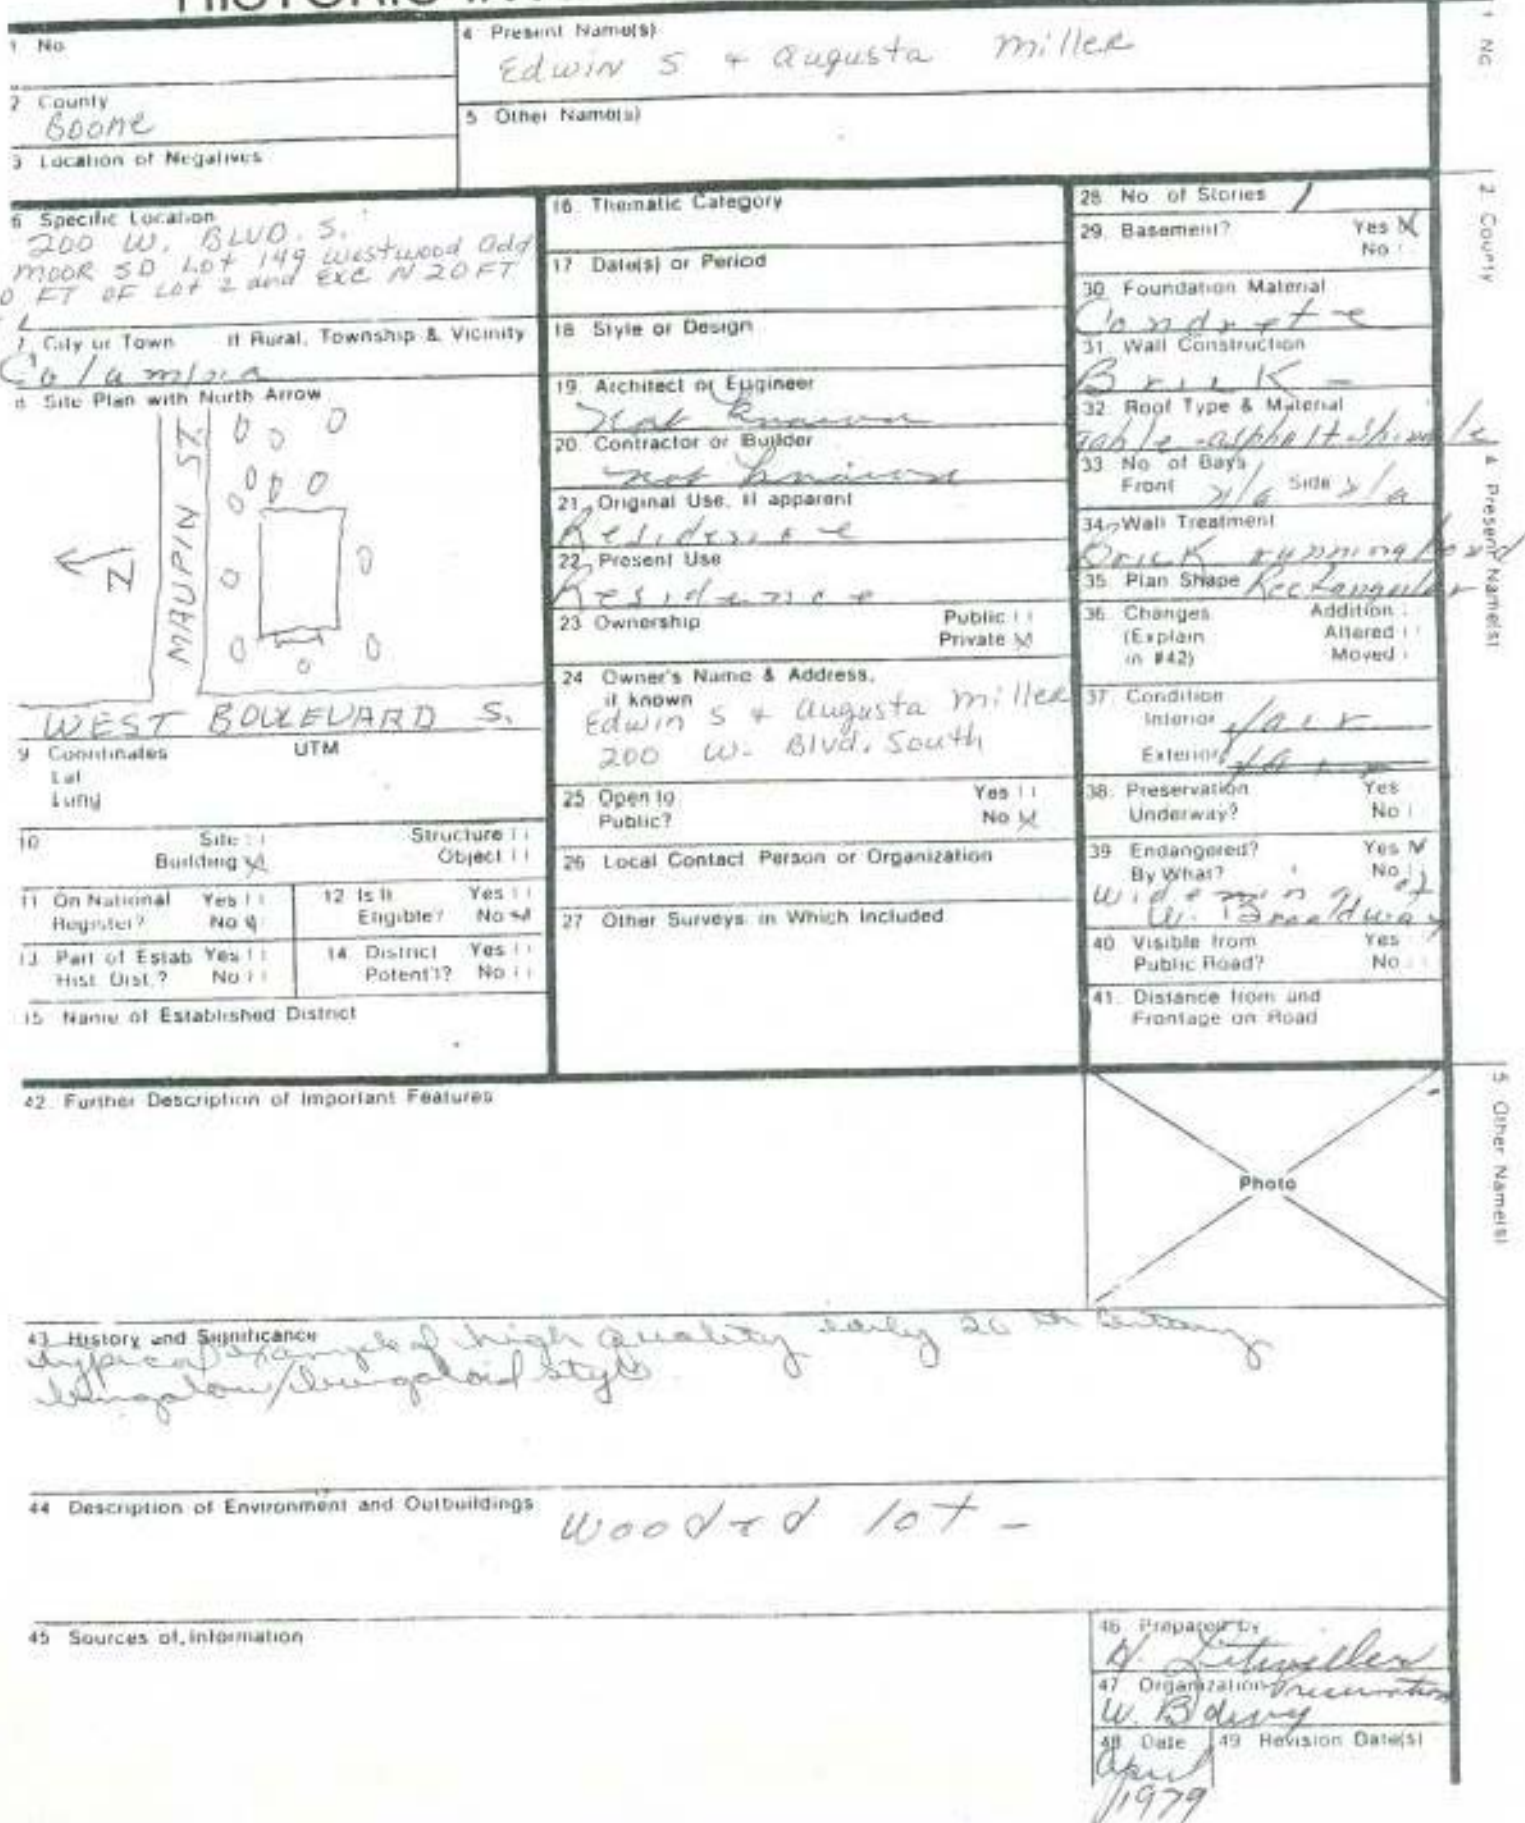 HISTORIC IN
1 No.
4 Present Name(s)
Edwin S + Augusta Miller
2 County
Boone
5 Other Name(s)
3 Location of Negatives
6 Specific Location
200 W. BLVD. S.
MOOR SD Lot 149 Westwood Add
0 FT OF Lot 2 and Exc N 20 FT
7 City or Town If Rural, Township & Vicinity
Columbia
8 Site Plan with North Arrow
N
MAUPIN ST.
WEST BOULEVARD S.
9 Coordinates UTM
Lat
Long
10 Site
Structure
Building X
Object
11 On National Register? Yes
No X
12 Is It Eligible? Yes
No X
13 Part of Estab Hist. Dist.? Yes
No
14 District Potent'l? Yes
No
15 Name of Established District
16. Thematic Category
17 Date(s) or Period
18 Style or Design
19. Architect or Engineer
not known
20. Contractor or Builder
not known
21. Original Use, if apparent
Residence
22. Present Use
Residence
23 Ownership Public
Private X
24 Owner's Name & Address,
if known
Edwin S + Augusta Miller
200 W. Blvd. South
25 Open to Public? Yes
No X
26 Local Contact Person or Organization
27 Other Surveys in Which Included
28 No. of Stories 1
29. Basement? Yes X
No
30. Foundation Material
Concrete
31. Wall Construction
Brick -
32. Roof Type & Material
gable-asphalt shingle
33 No. of Bays
Front n/a Side n/a
34. Wall Treatment
Brick running bond
35. Plan Shape Rectangular
36. Changes (Explain in #42) Addition
Altered
Moved
37. Condition
Interior fair
Exterior fair
38. Preservation Underway? Yes
No
39 Endangered? Yes X
By What? No
Widening of
W. Broadway
40 Visible from Public Road? Yes
No
41. Distance from and
Frontage on Road
42. Further Description of Important Features
Photo
43 History and Significance
typical example of high quality early 20th Century
bungalow/bungaloid style
44 Description of Environment and Outbuildings
Wooded lot -
45 Sources of Information
46 Prepared by
47 Organization Preservation
48 Date
April
1979
49 Revision Date(s)
1 No
2 County
4 Present Name(s)
5 Other Name(s)